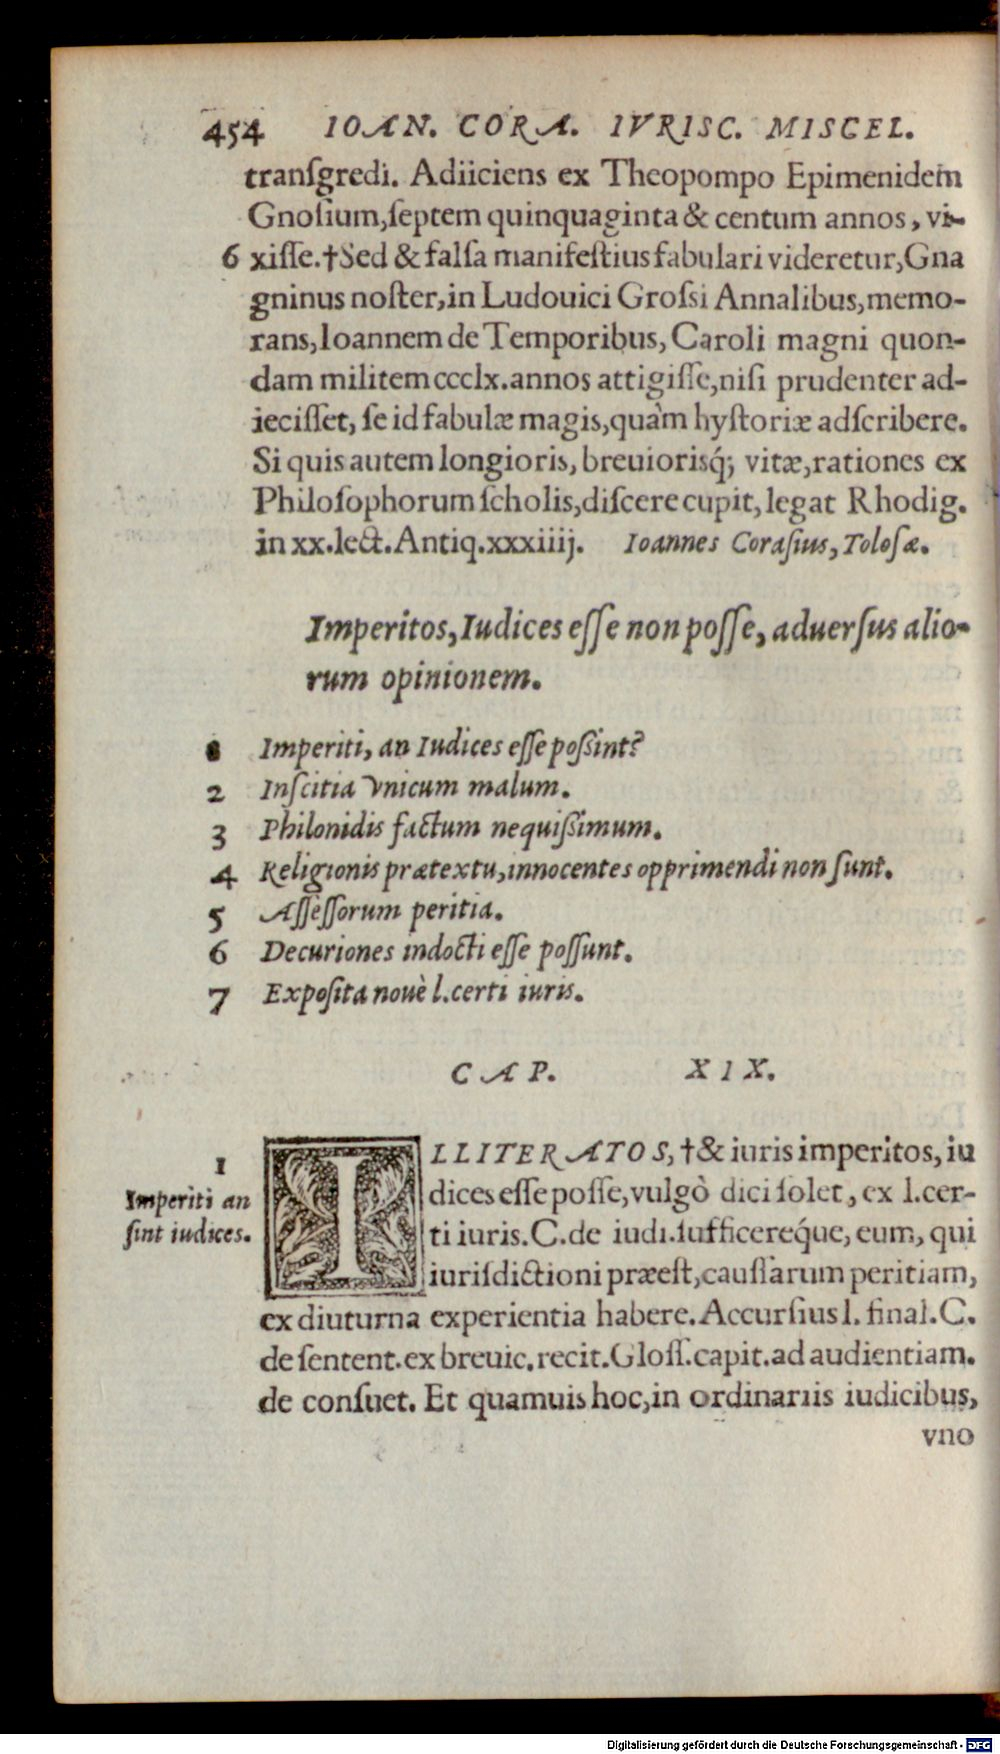 454 IOAN. CORA. IVRISC. MISCEL.
tranſgredi. Adiiciens ex Theopompo Epimenidem
Gnoſium,ſeptem quinquaginta & centum annos, vi-
6 xiſſe.†Sed & falſa manifeſtius fabulari videretur,Gna
gninus noſter,in Ludouici Groſsi Annalibus,memo-
rans,Ioannem de Temporibus, Caroli magni quon-
dam militem ccclx.annos attigiſſe,niſi prudenter ad-
ieciſſet, ſe id fabulæ magis,quàm hyſtoriæ adſcribere.
Si quis autem longioris, breuiorisq́; vitæ,rationes ex
Philoſophorum ſcholis,diſcere cupit,legat Rhodig.
in xx.lect.Antiq.xxxiiij. Ioannes Coraſius,Toloſæ.
Imperitos,Iudices eſſe non poſſe, aduerſus alio-
rum opinionem.
1 Imperiti, an Iudices eſſe poſsint?
2 Inſcitia vnicum malum.
3 Philonidis factum nequiſsimum.
4 Religionis prætextu,innocentes opprimendi non ſunt.
5 Aſſeſſorum peritia.
6 Decuriones indocti eſſe poſſunt.
7 Expoſita nouè l.certi iuris.
CAP. XIX.
1
Imperiti an
ſint iudices.
ILLITERATOS, †& iuris imperitos, iu
dices eſſe poſſe,vulgò dici ſolet, ex l.cer-
ti iuris.C.de iudi.ſufficereq́ue, eum, qui
iuriſdictioni præeſt,cauſſarum peritiam,
ex diuturna experientia habere.Accurſius l. final.C.
de ſentent.ex breuic.recit.Gloſſ.capit.ad audientiam.
de conſuet. Et quamuis hoc,in ordinariis iudicibus,
vno
Digitalisierung gefördert durch die Deutsche Forschungsgemeinschaft - DFG